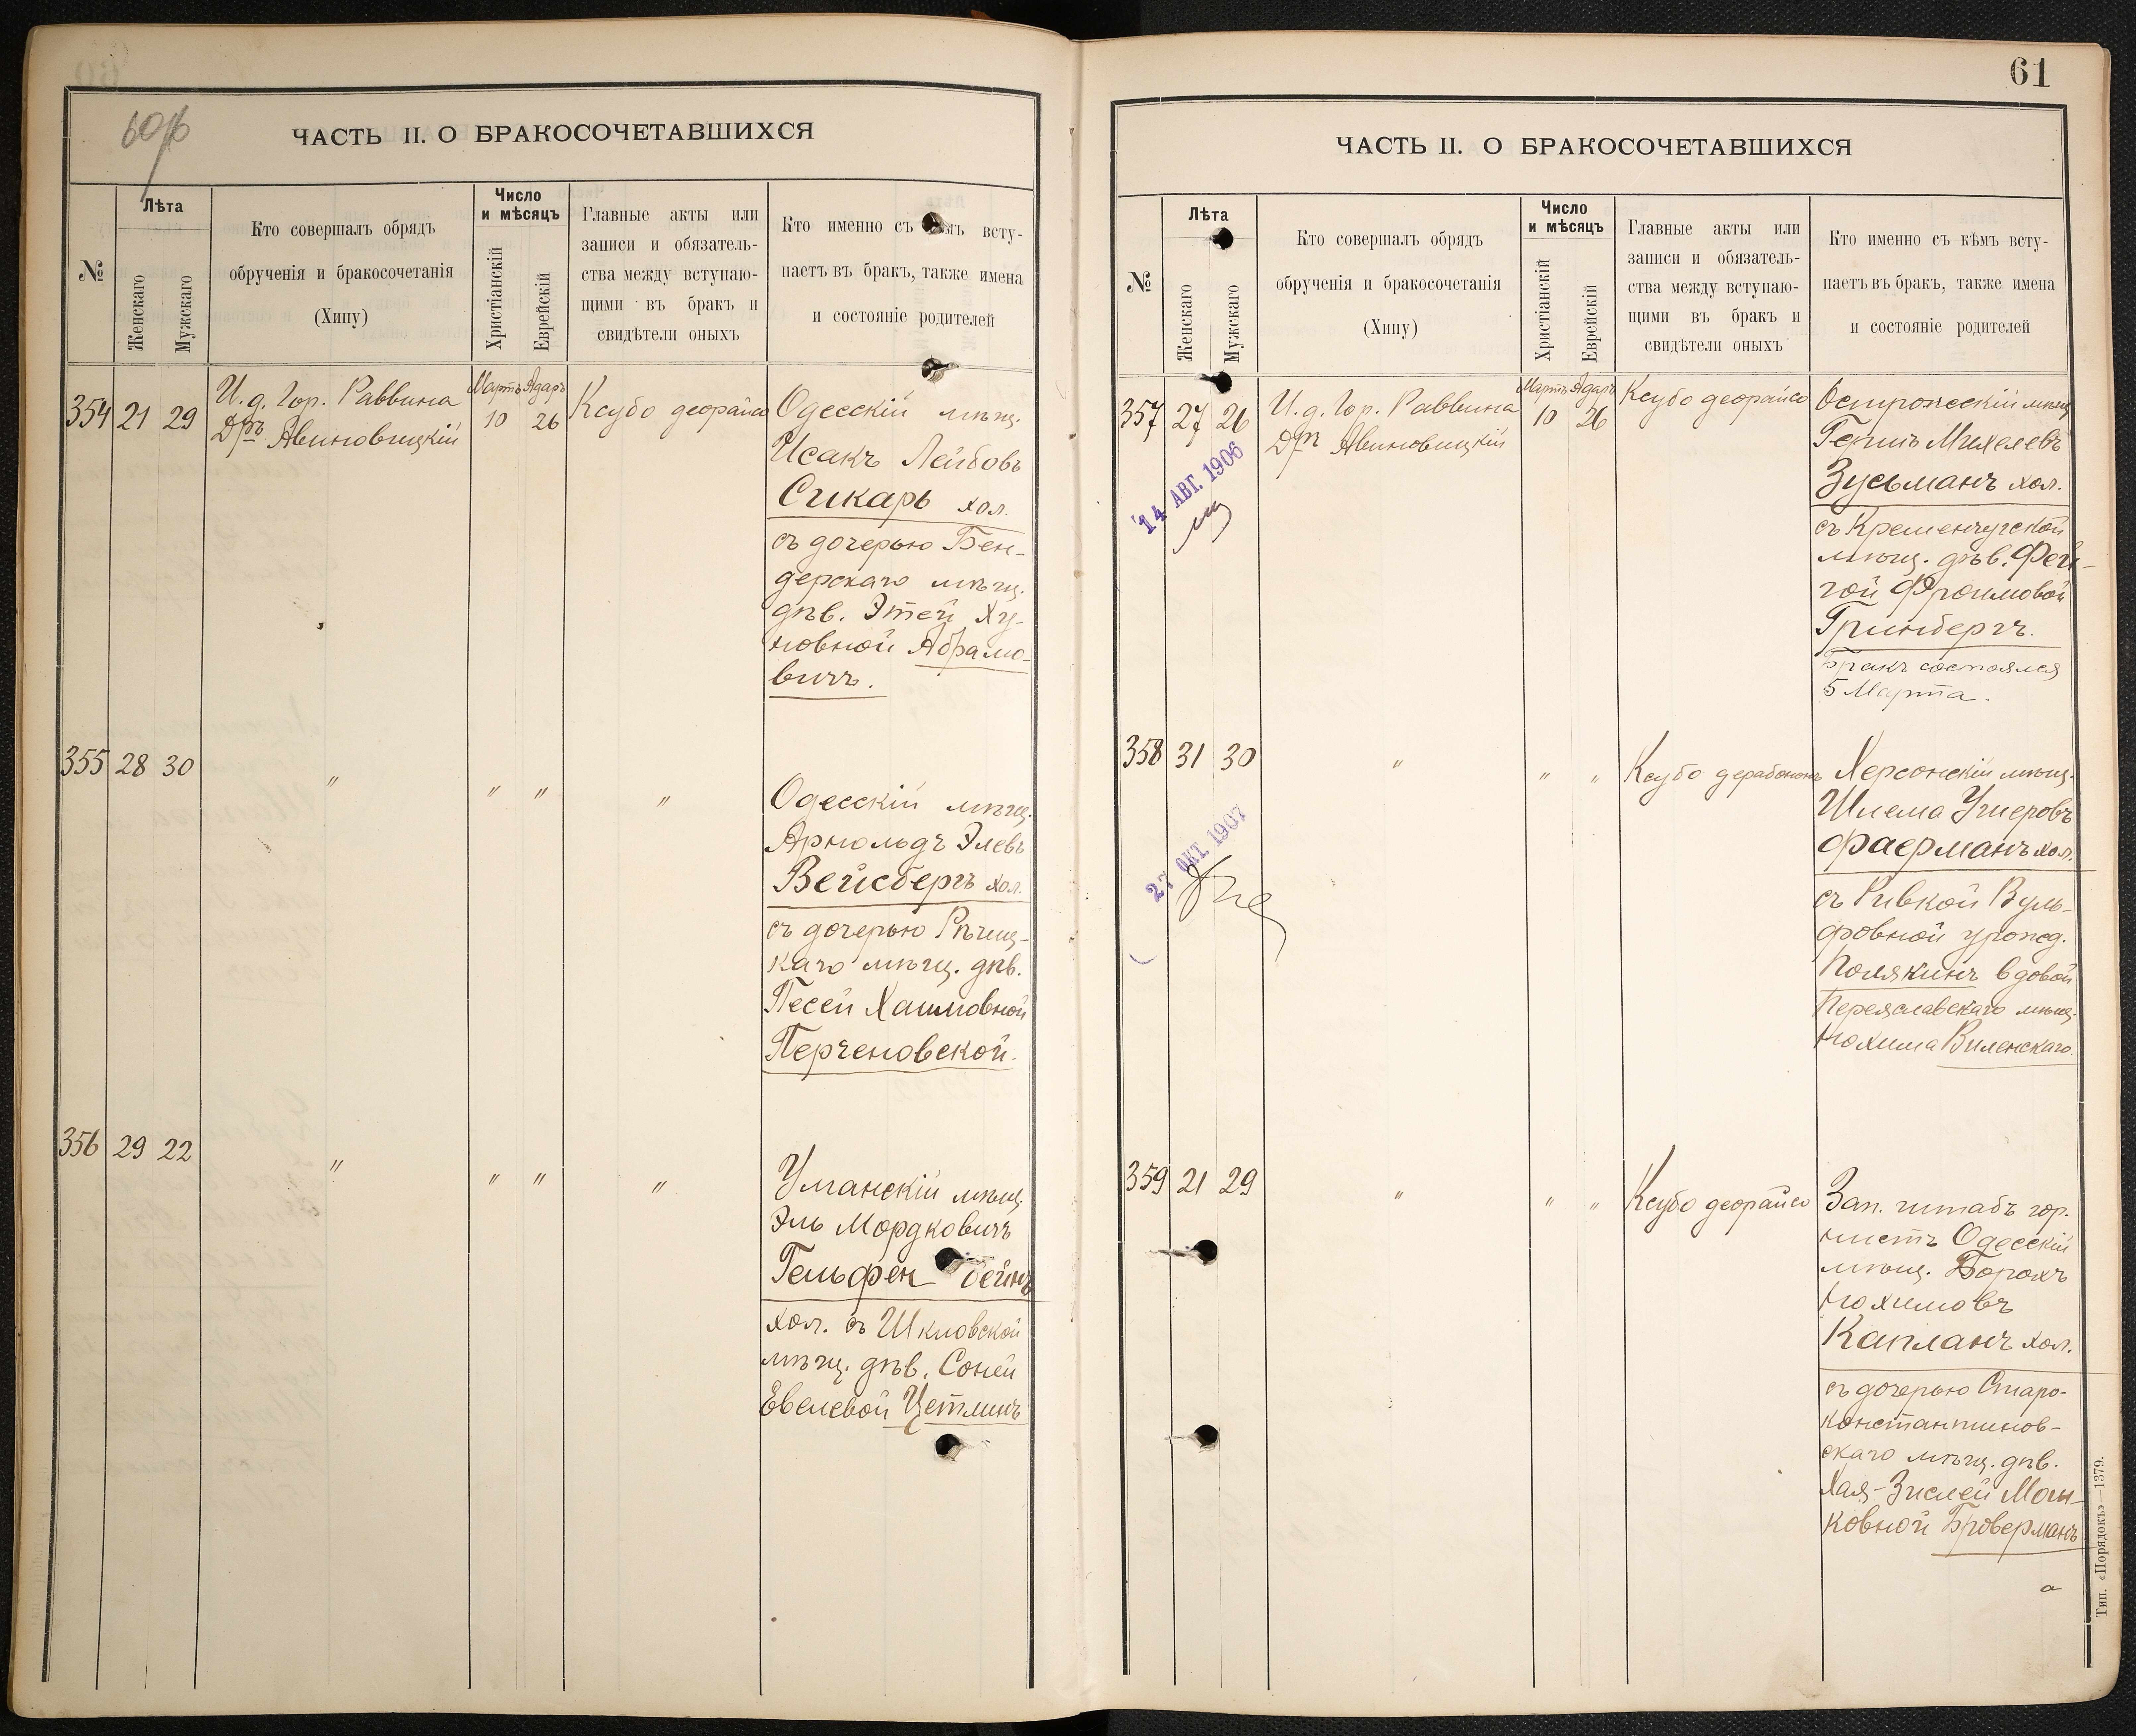 60об
ЧАСТЬ II. О БРАКОСОЧЕТАВШИХСЯ
№
Лѣта
Женскаго
Мужскаго
Кто совершалъ обрядъ
обрученія и бракосочетанія
(Хипу)
Число
и мѣсяцъ
Христіанскій
Еврейскій
Главные акты или
записи и обязатель-
ства между вступаю-
щими въ бракъ и
свидѣтели оныхъ
Кто именно съ всту-
паетъ въ бракъ, также имена
и состояніе родителей
354 21 29
И. д. Гор. Раввина
Дръ Авиновицкій
Мартъ Адаръ
10 26
Ксубо деорайсо
Одесскій мѣщ.
Исакъ Лейбовъ
Сикарь хол.
съ дочерью Бен-
дерскаго мѣщ.
дѣв. Этей Ху-
новной Абрамо-
вичъ.
355 28 30 " " " "
Одесскій мѣщ.
Арнольдъ Элевъ
Вейсбергъ хол.
съ дочерью Рѣчиц-
каго мѣщ. дѣв.
Песей Хаимовной
Перченовской.
356 29 22 " " " "
Уманскій мѣщ.
Эль Мордковичъ
Гельфенбейнъ
хол. съ Шкловской
мѣщ. дѣв. Соней
Евелевой Цетлинъ
61
ЧАСТЬ II. О БРАКОСОЧЕТАВШИХСЯ
№
Лѣта
Женскаго
Мужскаго
Кто совершалъ обрядъ
обрученія и бракосочетанія
(Хипу)
Число
и мѣсяцъ
Христіанскій
Еврейскій
Главные акты или
записи и обязатель-
ства между вступаю-
щими въ бракъ и
свидѣтели оныхъ
Кто именно съ кѣмъ всту-
паетъ въ бракъ, также имена
и состояніе родителей
357 27 26
14 АВГ. 1906
И. д. Гор. Раввина
Дръ Авиновицкій
Мартъ Адаръ
10 26
Ксубо деорайсо
Острожскій мѣщ.
Гершъ Михелевъ
Зусьманъ хол.
съ Кременчугской
мѣщ. дѣв. Фей-
гой Фроимовой
Гринбергъ.
Бракъ состоялся
5 Марта.
358 31 30 " " "
27 ОКТ. 1907
Ксубо дерабононъ
Херсонскій мѣщ.
Шлема Ушеровъ
Фаерманъ хол.
съ Ривкой Вуль-
фовной урожд.
Полякинъ вдовой
Переяславскаго мѣщ.
Нохима Виленскаго.
359 21 29 " " "
Ксубо деорайсо
Зап. штабъ гор-
нистъ Одесскій
мѣщ. Борохъ
Нохимовъ
Капланъ хол.
съ дочерью Старо-
константинов-
скаго мѣщ. дѣв.
Хая-Зислей Мош-
ковной Броверманъ
Тип. «Порядокъ»—1379.